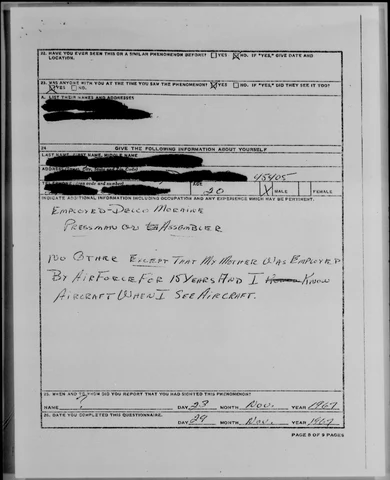 22. HAVE YOU EVER SEEN THIS OR A SIMILAR PHENOMENON BEFORE? YES NO. IF "YES," GIVE DATE AND
LOCATION.
23. WAS ANYONE WITH YOU AT THE TIME YOU SAW THE PHENOMENON? YES NO. IF "YES," DID THEY SEE IT TOO?
YES NO.
A. LIST THEIR NAMES AND ADDRESSES
24. GIVE THE FOLLOWING INFORMATION ABOUT YOURSELF
LAST NAME, FIRST NAME, MIDDLE NAME
ADDRESS
AGE
20 X MALE FEMALE
INDICATE ADDITIONAL INFORMATION INCLUDING OCCUPATION AND ANY EXPERIENCE WHICH MAY BE PERTINENT.
EMPLOYED - DELCO MORAINE
PRESSMAN ASSEMBLER
NO OTHER EXCEPT THAT MY MOTHER WAS EMPLOYED
BY AIR FORCE FOR 15 YEARS AND I KNOW
AIRCRAFT WHEN I SEE AIRCRAFT.
25. WHEN AND TO WHOM DID YOU REPORT THAT YOU HAD SIGHTED THIS PHENOMENON?
NAME DAY 27 MONTH NOV. YEAR 1967
26. DATE YOU COMPLETED THIS QUESTIONNAIRE. DAY 29 MONTH NOV. YEAR 1967
PAGE 5 OF 5 PAGES